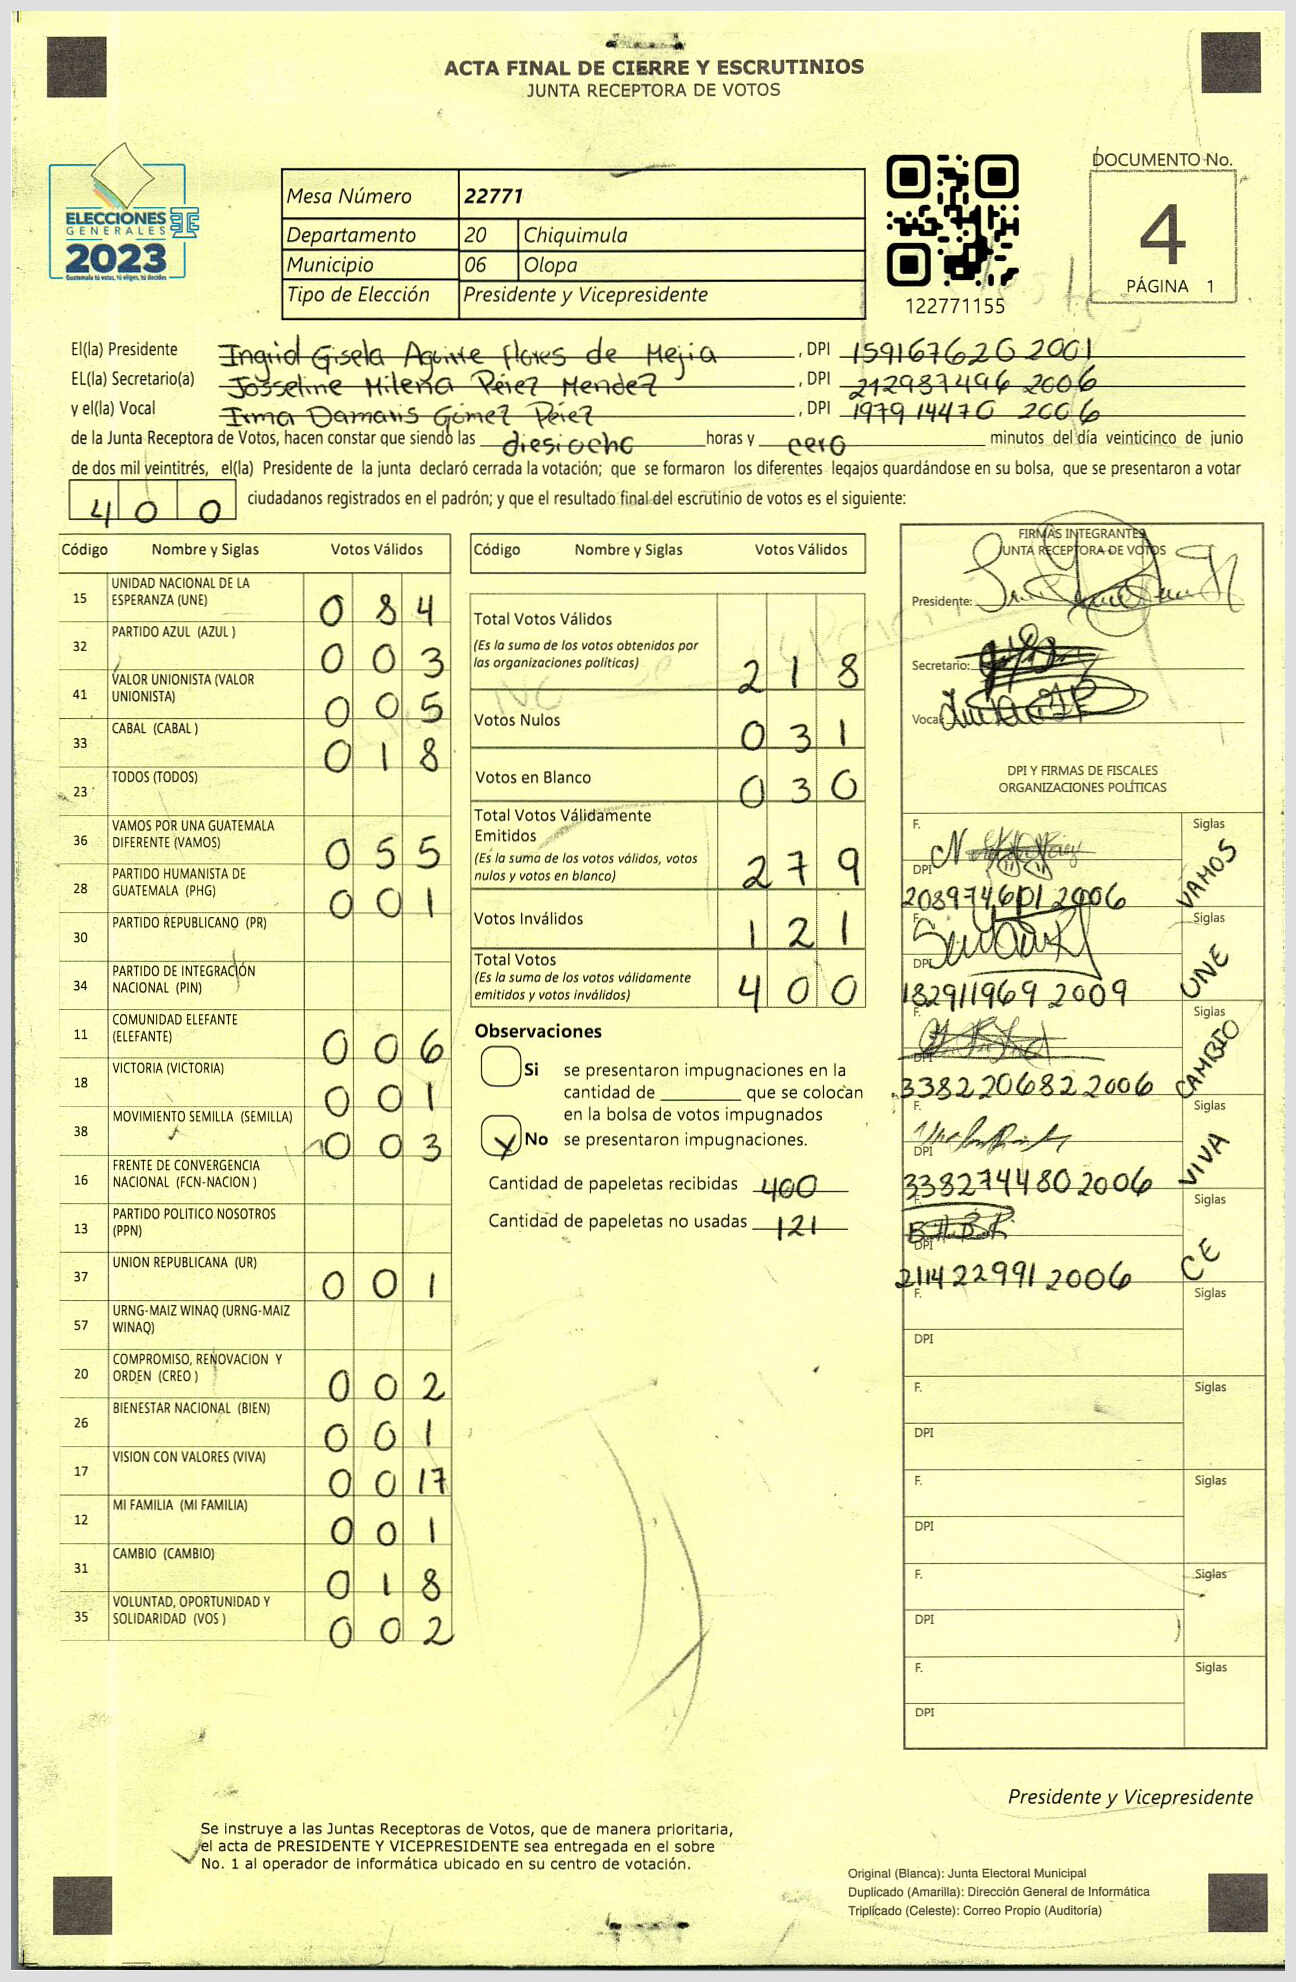 ACTA FINAL DE CIERRE Y ESCRUTINIOS
JUNTA RECEPTORA DE VOTOS
ELECCIONES
GENERALES
2023
Guatemala tú votas, tú eliges, tú decides
Mesa Número 22771
Departamento 20 Chiquimula
Municipio 06 Olopa
Tipo de Elección Presidente y Vicepresidente
122771155
DOCUMENTO No.
4
PÁGINA 1
El(la) Presidente Ingrid Gisela Aguirre flores de Mejia, DPI 159167620 2001
EL(la) Secretario(a) Josseline Milena Pérez Mendez, DPI 212987496 2006
y el(la) Vocal Irma Damaris Gómez Pérez, DPI 197914470 2006
de la Junta Receptora de Votos, hacen constar que siendo las diesiocho horas y cero minutos del día veinticinco de junio
de dos mil veintitrés, el(la) Presidente de la junta declaró cerrada la votación; que se formaron los diferentes legajos guardándose en su bolsa, que se presentaron a votar
400 ciudadanos registrados en el padrón; y que el resultado final del escrutinio de votos es el siguiente:
Código Nombre y Siglas Votos Válidos
15 UNIDAD NACIONAL DE LA ESPERANZA (UNE) 084
32 PARTIDO AZUL (AZUL ) 003
41 VALOR UNIONISTA (VALOR UNIONISTA) 005
33 CABAL (CABAL ) 018
23 TODOS (TODOS)
36 VAMOS POR UNA GUATEMALA DIFERENTE (VAMOS) 055
28 PARTIDO HUMANISTA DE GUATEMALA (PHG) 001
30 PARTIDO REPUBLICANO (PR)
34 PARTIDO DE INTEGRACIÓN NACIONAL (PIN)
11 COMUNIDAD ELEFANTE (ELEFANTE) 006
18 VICTORIA (VICTORIA) 001
38 MOVIMIENTO SEMILLA (SEMILLA) 003
16 FRENTE DE CONVERGENCIA NACIONAL (FCN-NACION )
13 PARTIDO POLITICO NOSOTROS (PPN)
37 UNION REPUBLICANA (UR) 001
57 URNG-MAIZ WINAQ (URNG-MAIZ WINAQ)
20 COMPROMISO, RENOVACION Y ORDEN (CREO ) 002
26 BIENESTAR NACIONAL (BIEN) 001
17 VISION CON VALORES (VIVA) 0017
12 MI FAMILIA (MI FAMILIA) 001
31 CAMBIO (CAMBIO) 018
35 VOLUNTAD, OPORTUNIDAD Y SOLIDARIDAD (VOS ) 002
Código Nombre y Siglas Votos Válidos
Total Votos Válidos
(Es la suma de los votos obtenidos por
las organizaciones políticas) 218
Votos Nulos 031
Votos en Blanco 030
Total Votos Válidamente
Emitidos
(Es la suma de los votos válidos, votos
nulos y votos en blanco) 279
Votos Inválidos 121
Total Votos
(Es la suma de los votos válidamente
emitidos y votos inválidos) 400
Observaciones
Si se presentaron impugnaciones en la
cantidad de ________ que se colocan
en la bolsa de votos impugnados
X No se presentaron impugnaciones.
Cantidad de papeletas recibidas 400
Cantidad de papeletas no usadas 121
FIRMAS INTEGRANTES
JUNTA RECEPTORA DE VOTOS
Presidente:
Secretario:
Vocal
DPI Y FIRMAS DE FISCALES
ORGANIZACIONES POLÍTICAS
F. Siglas
DPI 208974601 2006 VAMOS
F. Siglas
DPI 182911969 2009 UNE
F. Siglas
DPI 338220682 2006 CAMBIO
F. Siglas
DPI 338274480 2006 VIVA
F. Siglas
DPI 211422991 2006 CE
F. Siglas
DPI
F. Siglas
DPI
F. Siglas
DPI
F. Siglas
DPI
F. Siglas
DPI
Presidente y Vicepresidente
Se instruye a las Juntas Receptoras de Votos, que de manera prioritaria,
el acta de PRESIDENTE Y VICEPRESIDENTE sea entregada en el sobre
No. 1 al operador de informática ubicado en su centro de votación.
Original (Blanca): Junta Electoral Municipal
Duplicado (Amarilla): Dirección General de Informática
Triplicado (Celeste): Correo Propio (Auditoría)